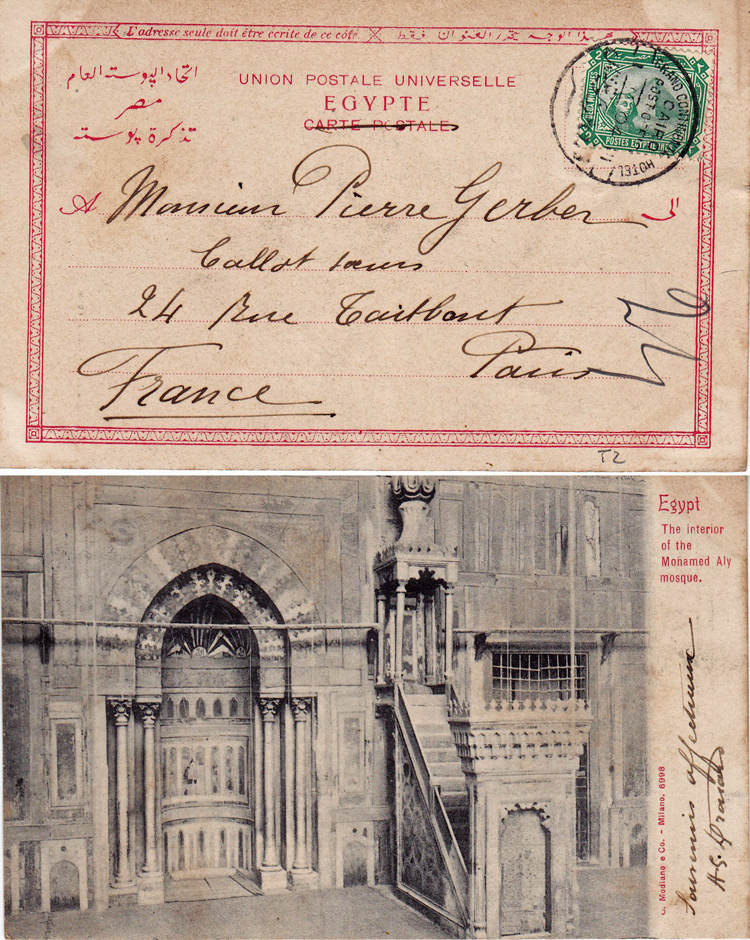 L'adresse seule doit être écrite de ce côté
بهذا الوجه يحرر العنوان فقط
اتحاد البوسته العام
مصر
تذكرة بوسته
UNION POSTALE UNIVERSELLE
EGYPTE
CARTE POSTALE
GRAND CONTINENTAL HOTEL
CAIRO
POSTES EGYPTIENNES
A Monsieur Pierre Gerber الى
Callot sœurs
24 Rue Taitbout
Paris
France
T2
Egypt
The interior
of the
Mohamed Aly
mosque.
Souvenirs affectueux
C. Modiano e Co. - Milano. 6998